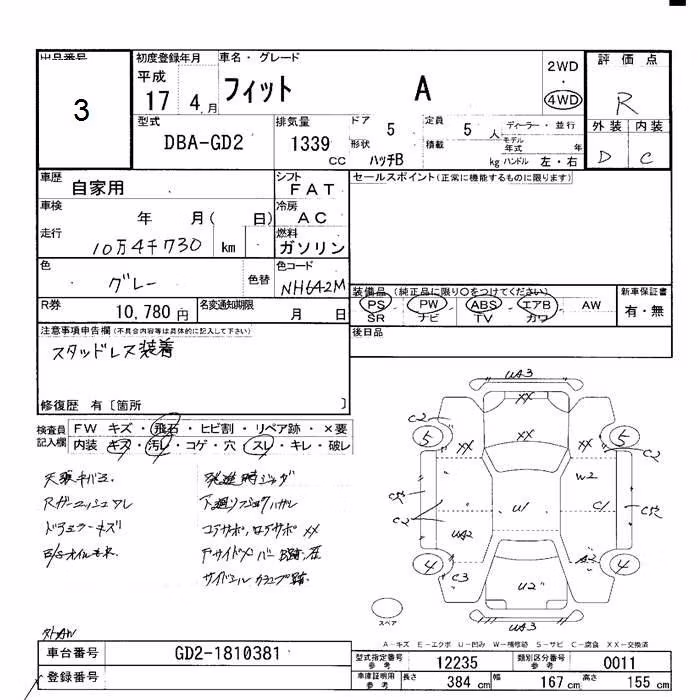 出品番号 初度登録年月 車名・グレード 評価点
3
平成 17 4月 フィット A 2WD・4WD R
型式 排気量 ドア 5 定員 5人 ディーラー・並行 外装 内装
DBA-GD2 1339 CC 形状 ハッチB 積載 kg モデル年式 年 ハンドル 左・右 D C
車歴 自家用 シフト FAT セールスポイント(正常に機能するものに限ります)
車検 年 月( 日) 冷房 AC
走行 10万4千730 km 燃料 ガソリン
色 グレー 色替 色コード NH642M
装備品 (純正品に限り○をつけてください) 新車保証書
R券 10,780円 名変通知期限 月 日
PS PW ABS エアB AW 有・無
SR ナビ TV カワ
注意事項申告欄(不具合内容等は具体的に記入して下さい) 後日品
スタッドレス装着
修復歴 有〔箇所 〕
検査員記入欄 FW キズ・飛石・ヒビ割・リペア跡・×要
内装 キズ・汚レ・コゲ・穴・スレ・キレ・破レ
発進時ジャダ
サイドシル
UA3
XX
C2 C2
5 XX XX XX 5
W2
C2 U1 C1
UA2 A2
4 C3 4
U2
UA3
スペア
A-キズ E-エクボ U-凹み W-補修跡 S-サビ C-腐食 XX-交換済
外AW
車台番号 GD2-1810381
登録番号
型式指定番号 参考 12235 類別区分番号 参考 0011
車庫証明用 参考 長さ 384 cm 幅 167 cm 高さ 155 cm